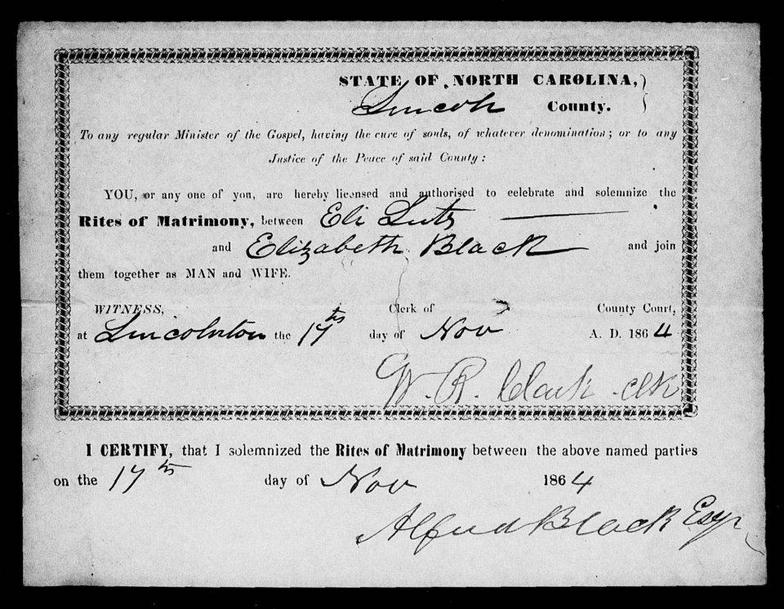 STATE OF NORTH CAROLINA,
Lincoln County.
To any regular Minister of the Gospel, having the cure of souls, of whatever denomination; or to any
Justice of the Peace of said County:
YOU, or any one of you, are hereby licensed and authorised to celebrate and solemnize the
Rites of Matrimony, between Eli Lutz
and Elizabeth Black and join
them together as MAN and WIFE.
WITNESS, Clerk of County Court,
at Lincolnton the 17th day of Nov A. D. 1864
W. R. Clark clk
I CERTIFY, that I solemnized the Rites of Matrimony between the above named parties
on the 17th day of Nov 1864
Alfred Black Esqr